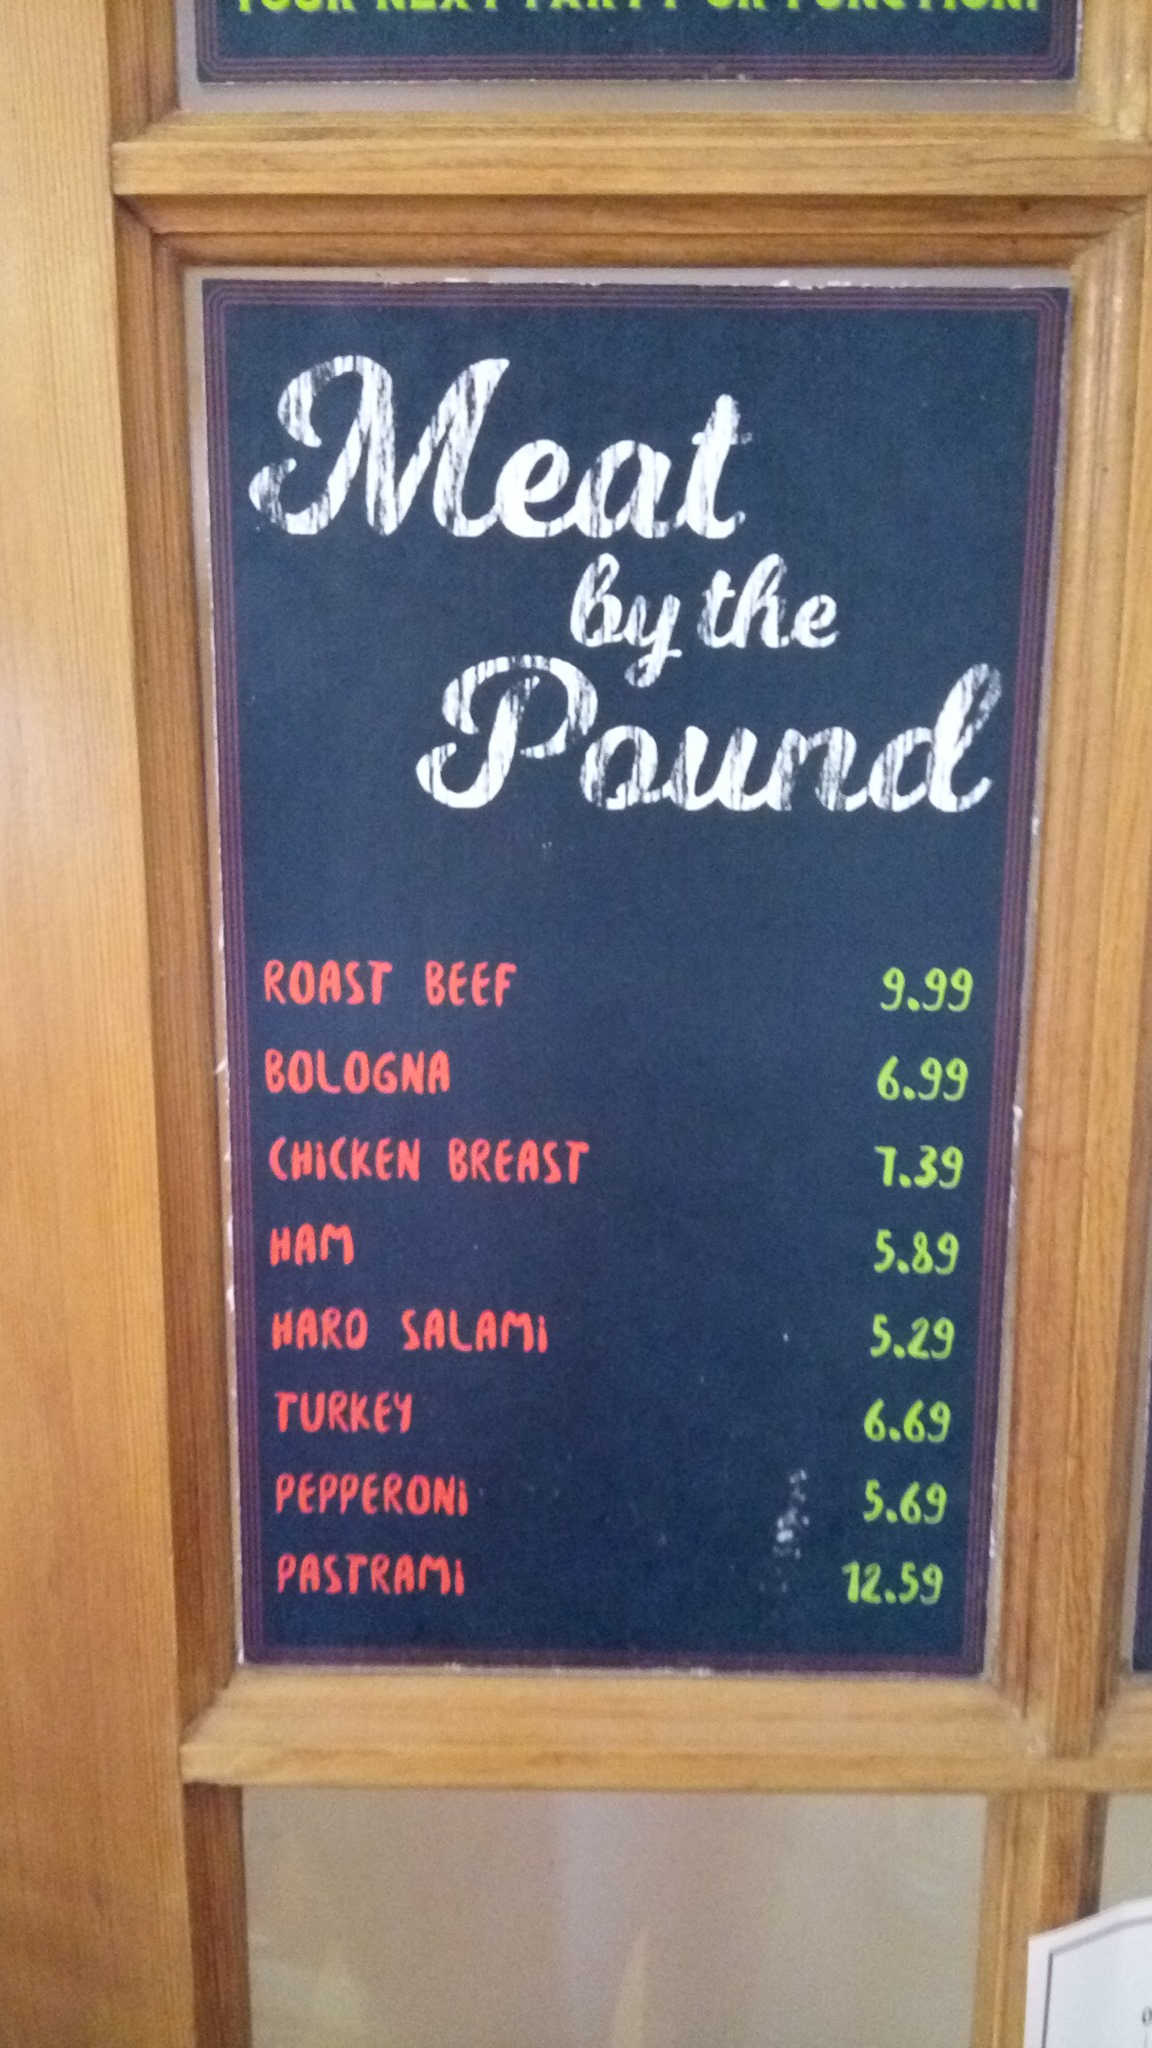 YOUR NEXT PARTY OR FUNCTION!
Meat
by the
Pound
ROAST BEEF 9.99
BOLOGNA 6.99
CHICKEN BREAST 7.39
HAM 5.89
HARD SALAMI 5.29
TURKEY 6.69
PEPPERONI 5.69
PASTRAMI 12.59